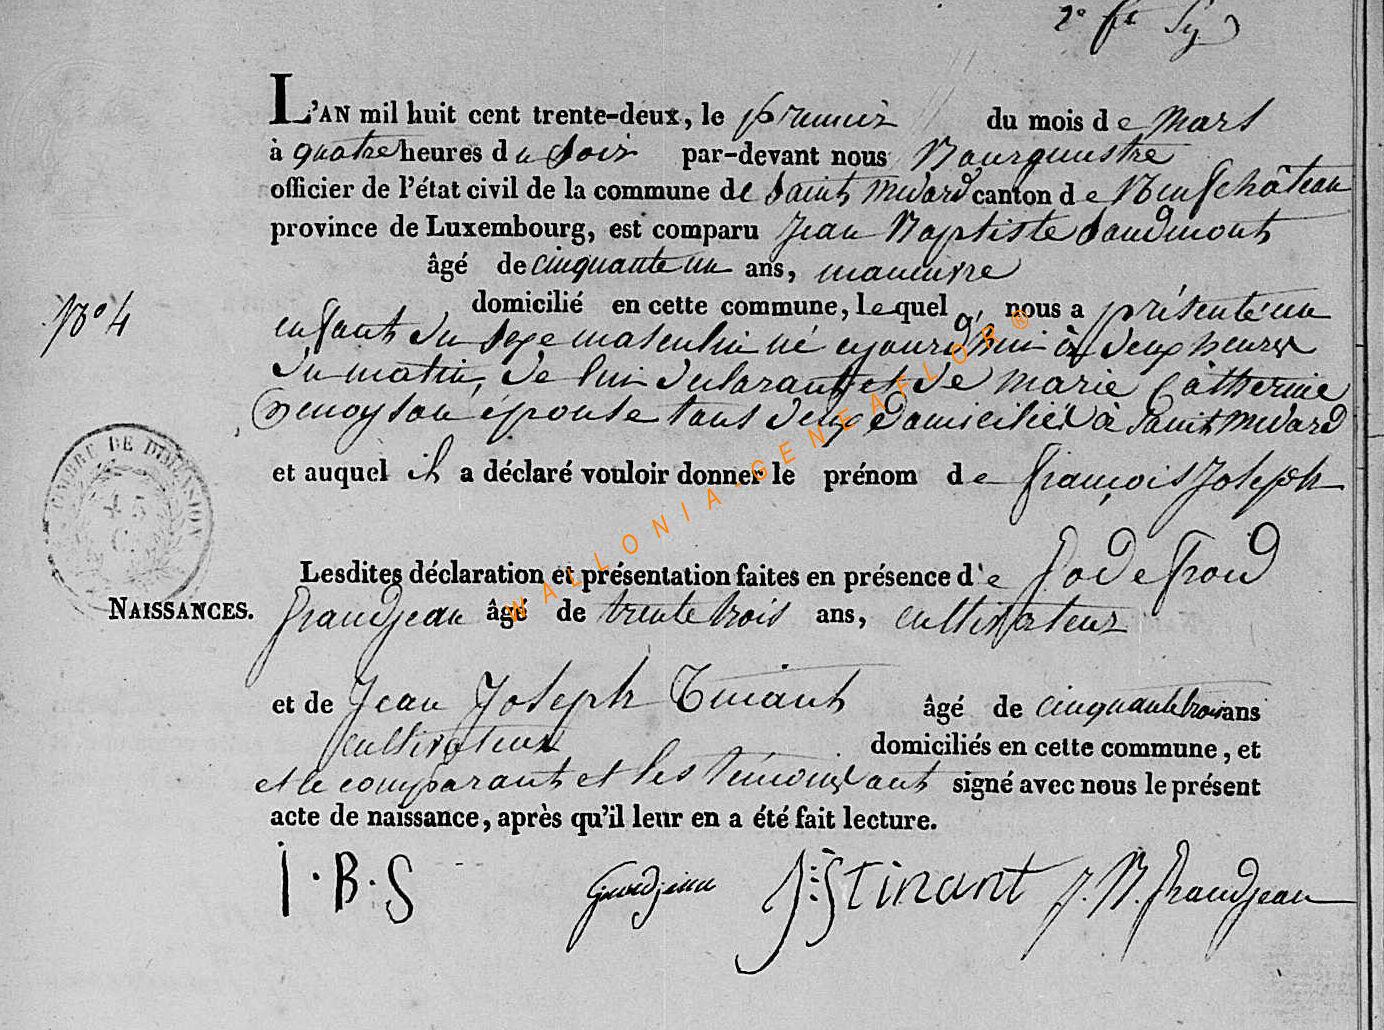 2e
L'AN mil huit cent trente-deux, le premier du mois de Mars
à quatre heures du soir par-devant nous Bourgmestre
officier de l'état civil de la commune de Saint Médard canton de Neufchâteau
province de Luxembourg, est comparu Jean Baptiste Saudmont
âgé de cinquante un ans, manuvre
N° 4
domicilié en cette commune, lequel nous a présenté un
enfant du sexe masculin né cejourd'hui à deux heures
du matin, de lui déclarant et de Marie Catherine
son épouse tous deux domiciliés à Saint Médard
et auquel il a déclaré vouloir donner le prénom de François Joseph
TIMBRE DE DIMENSION
45
C.
Lesdites déclaration et présentation faites en présence de Godefroid
NAISSANCES.
Grandjean âgé de trente trois ans, cultivateur
et de Jean Joseph Tinant âgé de cinquante trois ans
cultivateur domiciliés en cette commune, et
et le comparant et les témoins ont signé avec nous le présent
acte de naissance, après qu'il leur en a été fait lecture.
I.B.S Grandjean J:J:Tinant J. N. Grandjean
WALLONIA-GENEAFLOR®